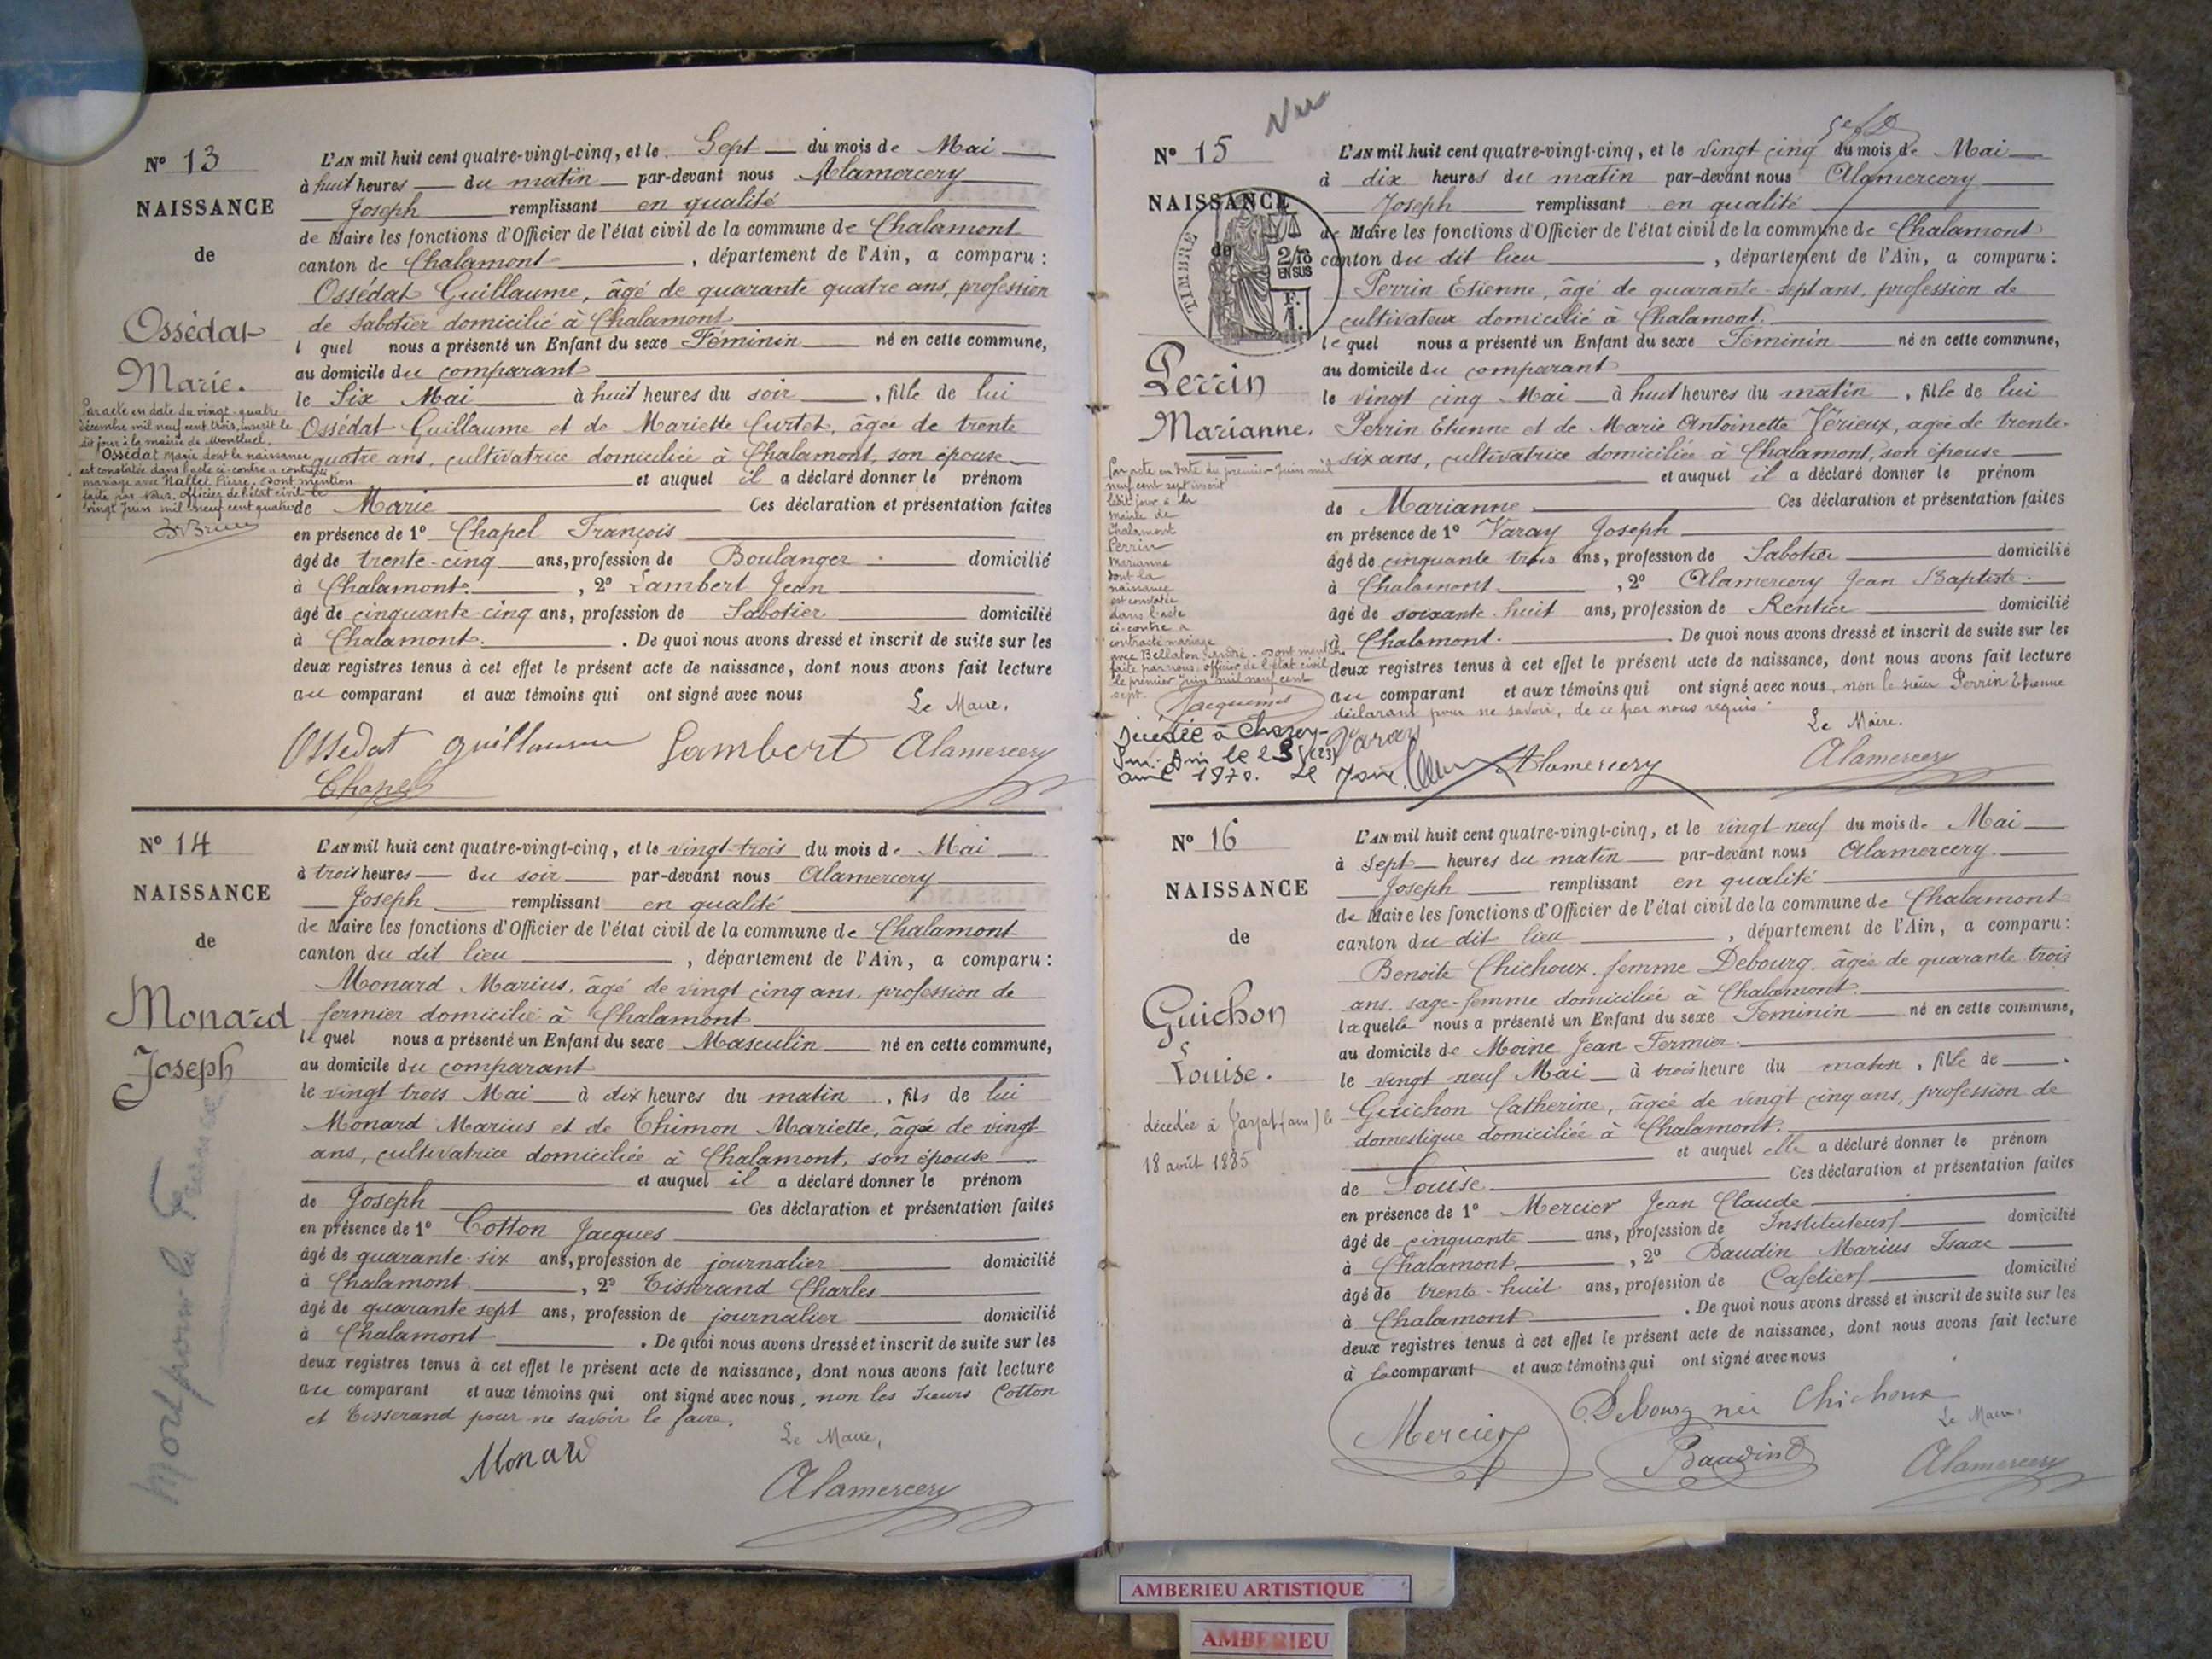 N° 13
NAISSANCE
de
Ossédat
Marie.
Par acte en date du vingt-quatre
décembre mil neuf cent trois, inscrit le
dit jour à la mairie de Montluel,
Ossédat Marie dont la naissance
est constatée dans l'acte ci-contre a contracté
mariage avec Nallet Pierre, Dont mention
faite par Nous, officier de l'état civil le
vingt Juin mil neuf cent quatre
L'AN mil huit cent quatre-vingt-cinq, et le Sept du mois de Mai
à huit heures du matin par-devant nous Alamercery
Joseph remplissant en qualité
de Maire les fonctions d'Officier de l'état civil de la commune de Chalamont
canton de Chalamont, département de l'Ain, a comparu :
Ossédat Guillaume, âgé de quarante quatre ans, profession
de Sabotier domicilié à Chalamont
l quel nous a présenté un Enfant du sexe Féminin né en cette commune,
au domicile du comparant
le Six Mai à huit heures du soir, fille de lui
Ossédat Guillaume et de Mariette Curtet, âgée de trente
quatre ans, cultivatrice domiciliée à Chalamont, son épouse
et auquel il a déclaré donner le prénom
de Marie Ces déclaration et présentation faites
en présence de 1° Chapel François
âgé de trente-cinq ans, profession de Boulanger domicilié
à Chalamont, 2° Lambert Jean
âgé de cinquante-cinq ans, profession de Sabotier domicilié
à Chalamont. De quoi nous avons dressé et inscrit de suite sur les
deux registres tenus à cet effet le présent acte de naissance, dont nous avons fait lecture
au comparant et aux témoins qui ont signé avec nous
Le Maire,
Ossedat guillaume Lambert Alamercery
Chapel
N° 14
NAISSANCE
de
Monard
Joseph
Mort pour la France
L'AN mil huit cent quatre-vingt-cinq, et le vingt-trois du mois de Mai
à trois heures du soir par-devant nous Alamercery
Joseph remplissant en qualité
de Maire les fonctions d'Officier de l'état civil de la commune de Chalamont
canton du dit lieu, département de l'Ain, a comparu :
Monard Marius, âgé de vingt cinq ans, profession de
fermier domicilié à Chalamont
le quel nous a présenté un Enfant du sexe Masculin né en cette commune,
au domicile du comparant
le vingt trois Mai à dix heures du matin, fils de lui
Monard Marius et de Thimon Mariette, âgée de vingt
ans, cultivatrice domiciliée à Chalamont, son épouse
et auquel il a déclaré donner le prénom
de Joseph Ces déclaration et présentation faites
en présence de 1° Cotton Jacques
âgé de quarante-six ans, profession de journalier domicilié
à Chalamont, 2° Tisserand Charles
âgé de quarante sept ans, profession de journalier domicilié
à Chalamont. De quoi nous avons dressé et inscrit de suite sur les
deux registres tenus à cet effet le présent acte de naissance, dont nous avons fait lecture
au comparant et aux témoins qui ont signé avec nous, non les sieurs Cotton
et Tisserand pour ne savoir le faire.
Le Maire,
Monard
Alamercery
N° 15
NAISSANCE
de
TIMBRE
2/10
EN SUS
F.
1.
Perrin
Marianne.
Par acte en date du premier Juin mil
neuf cent sept inscrit
ledit jour à la
mairie de
Chalamont
Perrin
Marianne
dont la
naissance
est constatée
dans l'acte
ci-contre a
contracté mariage
avec Bellaton André. Dont mention
faite par nous, officier de l'état civil
le premier Juin mil neuf cent
sept.
Jacquemet
Décédée à Chazey-
sur-Ain le 23 (23)
avril 1970. Le
L'AN mil huit cent quatre-vingt-cinq, et le vingt cinq du mois de Mai
à dix heures du matin par-devant nous Alamercery
Joseph remplissant en qualité
de Maire les fonctions d'Officier de l'état civil de la commune de Chalamont
canton du dit lieu, département de l'Ain, a comparu :
Perrin Etienne, âgé de quarante-sept ans, profession de
cultivateur domicilié à Chalamont.
le quel nous a présenté un Enfant du sexe Féminin né en cette commune,
au domicile du comparant
le vingt cinq Mai à huit heures du matin, fille de lui
Perrin Etienne et de Marie Antoinette Vérieux, agée de trente-
six ans, cultivatrice domiciliée à Chalamont, son épouse
et auquel il a déclaré donner le prénom
de Marianne Ces déclaration et présentation faites
en présence de 1° Varay Joseph
âgé de cinquante trois ans, profession de Sabotier domicilié
à Chalamont, 2° Alamercery Jean Baptiste
âgé de soixante-huit ans, profession de Rentier domicilié
à Chalamont. De quoi nous avons dressé et inscrit de suite sur les
deux registres tenus à cet effet le présent acte de naissance, dont nous avons fait lecture
au comparant et aux témoins qui ont signé avec nous, non le sieur Perrin Etienne
déclarant pour ne savoir, de ce par nous requis.
Le Maire.
Varay Alamercery Alamercery
N° 16
NAISSANCE
de
Guichon
Louise.
décedée à (ain) le
18 août 1885
L'AN mil huit cent quatre-vingt-cinq, et le vingt-neuf du mois de Mai
à sept heures du matin par-devant nous Alamercery
Joseph remplissant en qualité
de Maire les fonctions d'Officier de l'état civil de la commune de Chalamont
canton du dit lieu, département de l'Ain, a comparu :
Benoite Chichoux, femme Debourg, âgée de quarante trois
ans, sage-femme domiciliée à Chalamont.
laquelle nous a présenté un Enfant du sexe Féminin né en cette commune,
au domicile de Moine Jean Fermier.
le vingt neuf Mai à trois heure du matin, fille de
Guichon Catherine, âgée de vingt cinq ans, profession de
domestique domiciliée à Chalamont.
et auquel elle a déclaré donner le prénom
de Louise Ces déclaration et présentation faites
en présence de 1° Mercier Jean Claude
âgé de cinquante ans, profession de Instituteur domicilié
à Chalamont, 2° Baudin Marius Isaac
âgé de trente-huit ans, profession de Cafetier domicilié
à Chalamont. De quoi nous avons dressé et inscrit de suite sur les
deux registres tenus à cet effet le présent acte de naissance, dont nous avons fait lecture
à la comparant et aux témoins qui ont signé avec nous
Debourg née Chichoux
Le Maire,
Mercier Baudin Alamercery
AMBERIEU ARTISTIQUE
AMBERIEU